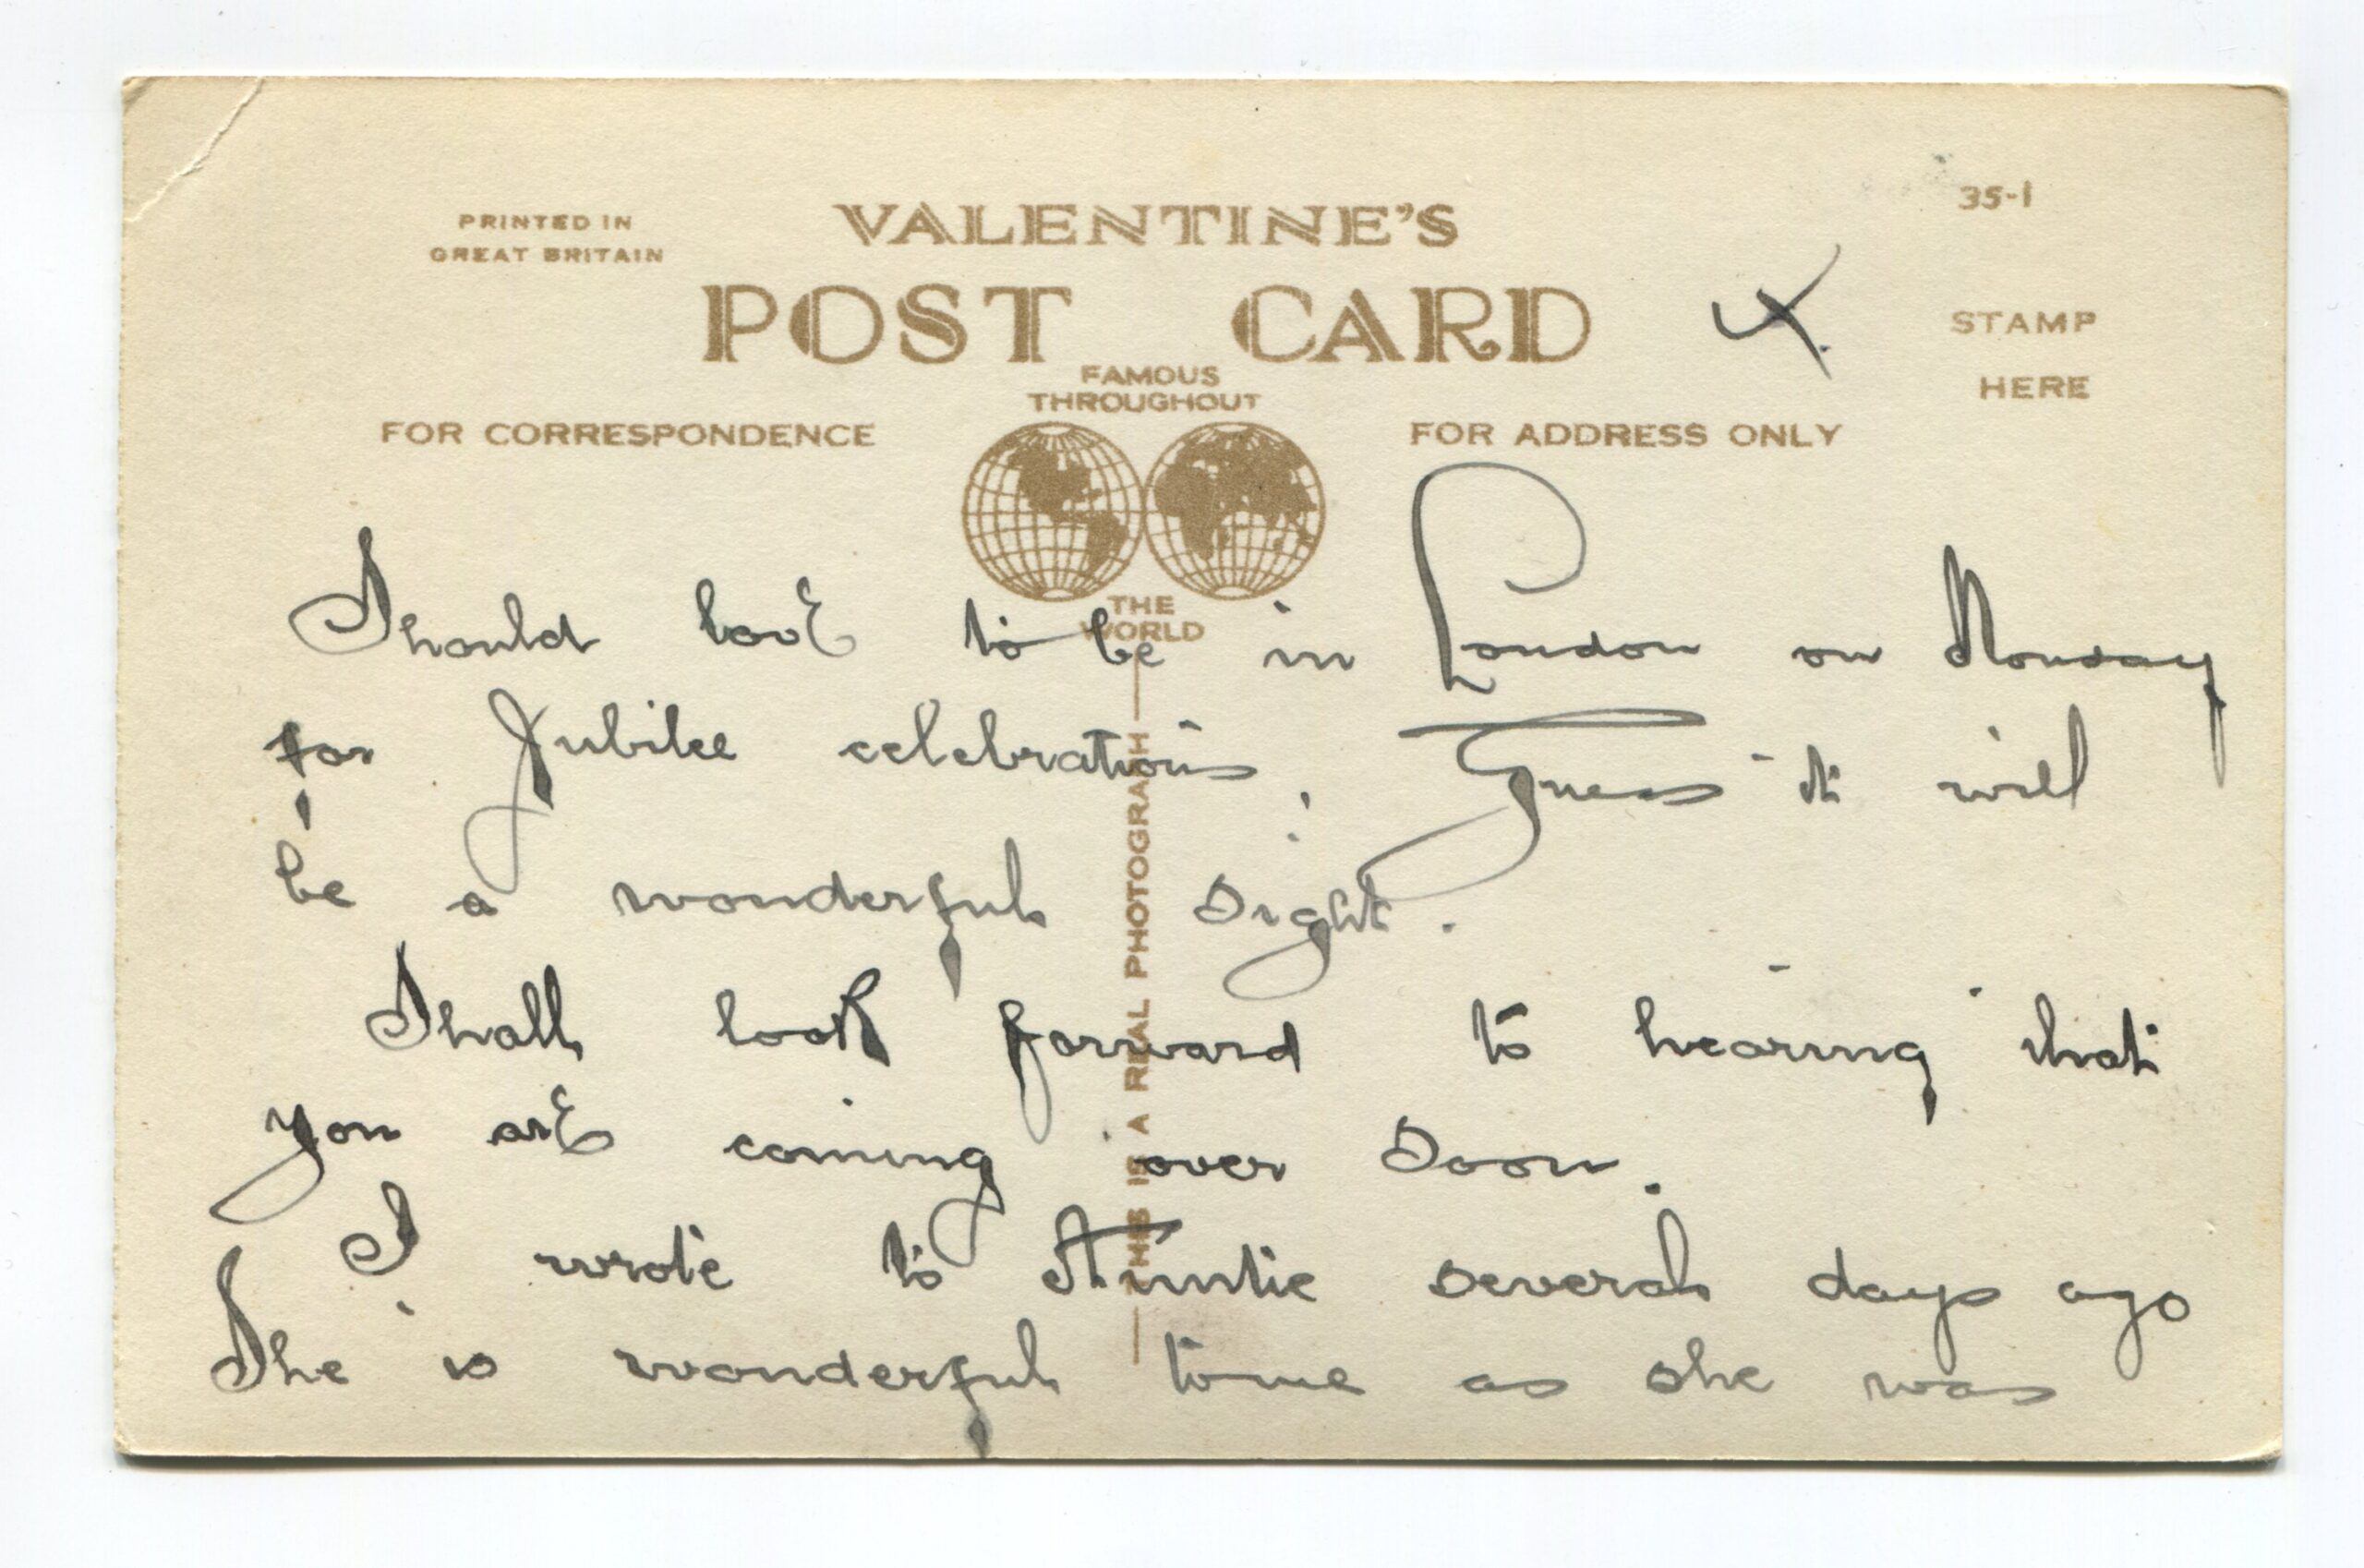 PRINTED IN
GREAT BRITAIN
VALENTINE'S
35-1
POST CARD
4.
STAMP
HERE
FAMOUS
THROUGHOUT
THE
WORLD
FOR CORRESPONDENCE
FOR ADDRESS ONLY
THIS IS A REAL PHOTOGRAPH
Should love to be in London on Monday
for Jubilee celebrations! Guess it will
be a wonderful sight.
Shall look forward to hearing that
you are coming over soon.
I wrote to Auntie several days ago
She is wonderful to me as she was